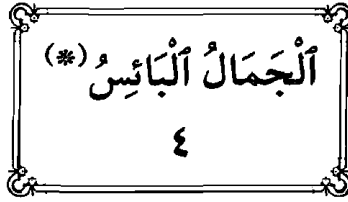 ٱلْجَمَالُ ٱلْبَائِسُ (*)
٤